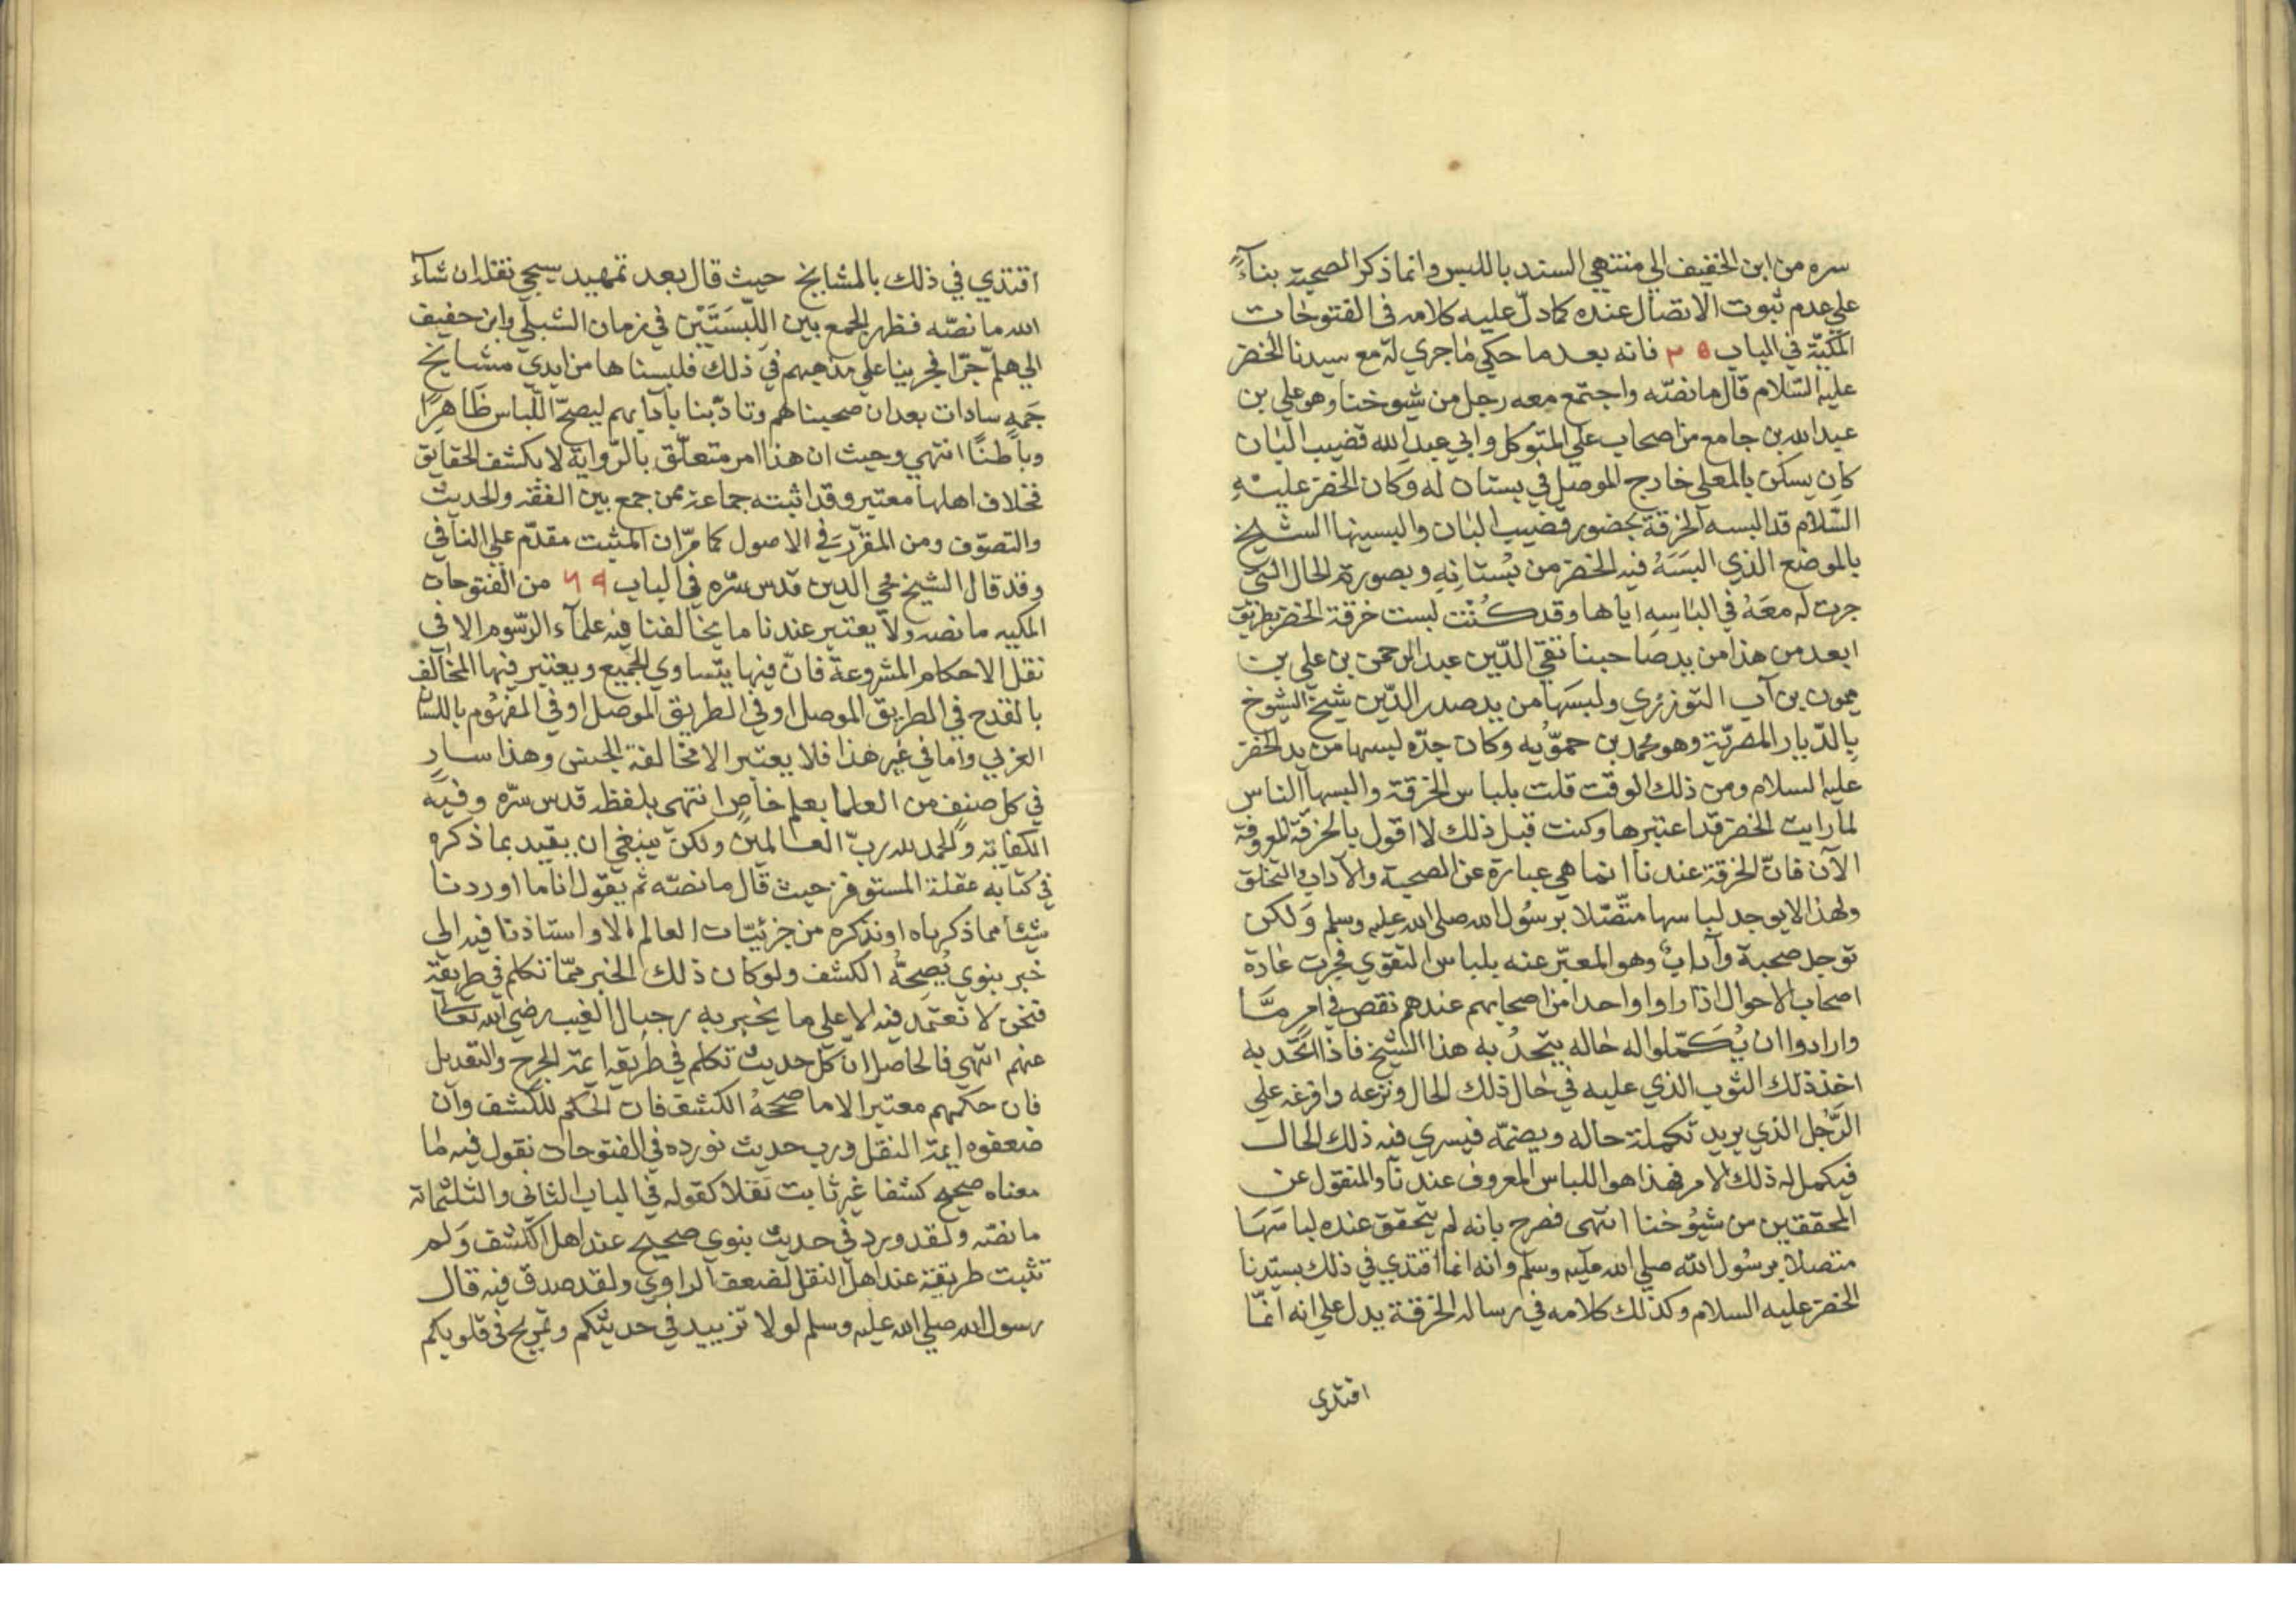 سره من ابن الخفيف الي منتهي السند باللبس وانما ذكر الصحبة بناءً
علي عدم ثبوت الاتصال عنده كما دلّ عليه كلامه في الفتوحات
المكيّة في الباب ٢٥ فانه بعد ما حكي ما جري له مع سيدنا الخضر
عليه السّلام قال ما نصّه واجتمع معه رجل من شيوخنا وهو علي بن
عبد الله بن جامع من اصحاب علي المتوكل وابي عبد الله قضيب البان
كان يسكن بالمعلي خارج الموصل في بستان له وكان الخضر عليه
السّلام قد البسه الخرقة بحضور قضيب البان والبسينها الشيخ
بالموضع الذي البَسَهُ فيه الخضر من بُستانِهِ وبصورة الحال التي
جرت له معَهُ في البَاسِهِ اياها وقد كُنْت لبست خرقة الخضر بطريق
ابعد من هذا من يد صاحبنا تقيّ الدّين عبد الرحمن بن علي بن
ميمون بن آب التوزري ولبسَها من يد صدر الدّين شيخ الشيوخ
بالدّيار المصريّة وهو محمد بن حمّويه وكان جدّه لبسها من يد الخضر
عليه السلام ومن ذلك الوقت قلت بلباس الخرقة والبسها الناس
لما رايت الخضر قد اعتبرها وكنت قبل ذلك لا اقول بالخرقة المعروفة
الآن فانّ الخرقة عندنا انما هي عبارة عن الصحبة والآداب والتخلق
ولهذا لا يوجد لباسها متّصلا برسُول الله صلي الله عليه وسلم وَلكن
توجد صحبة وآدابٌ وهو المعبّر عنه بلباس التقوي فجرت عادة
اصحاب الاحوال اذا راوا واحدا من اصحابهم عندهم نقص في امرٍ مَّا
وارادوا ان يُكَمّلوا له حاله يتحدُ به هذا الشيخ فاذا اتّحد به
اخذ ذلك الثوب الذي عليه في حال ذلك الحال ونزعه وافرغه علي
الرّجُل الذي يريد تكملة حاله ويضمّه فيسري فيه ذلك الحال
فيكمل له ذلك الامر فهذا هو اللباس المعروف عندنا والمنقول عن
المحققين من شيُوخنا انتهي فصرح بانه لم يتحقق عنده لباسَهَا
متصلا برسُول الله صلي الله عليه وسلم وانه انما اقتدي في ذلك بسيّدنا
الخضر عليه السلام وكذلك كلامه في رسالة الخرقة يدل علي انه انمّا
اقتدي
اقتدي في ذلك بالمشايخ حيث قال بعد تمهيد سيجي نقله ان شآء
الله ما نصّه فظهر الجمع بين اللّبسَتَيْن في زمان الشبلي وابن خفيف
الي هلمّ جرّا فجرينا علي مذهبهم في ذلك فلبسناها من ايدي مشايخ
جَمهٍ سادات بعد ان صحبناهم وتادّبنا بآدابهم ليصحّ اللّباس ظَاهِرًا
وباطنًا انتهي وحيث ان هذا امر متعلّق بالرّواية لا بكشف الحقايق
فخلاف اهلها معتبر وقد اثبته جماعة ممن جمع بين الفقه والحديث
والتصوّف ومن المقرّر في الاصول كما مرّ ان المثبت مقدّم علي النافي
وقد قال الشيخ محي الدين قدس سّره في الباب ٦٩ من الفتوحات
المكيه ما نصه ولا يعتبر عندنا ما يخالفنا فيه علمآء الرّسوم الا في
نقل الاحكام المشروعة فانّ فيها يتّساوي الجميع ويعتبر فيها المخالف
بالقدح في الطريق الموصل او في الطريق الموصل او في المفهُوم باللسان
العربي واما في غير هذا فلا يعتبر الا مخالفة الجنس وهذا سارٍ
في كل صنف من العلما بعلم خاصٍ انتهي بلفظه قدس سرّه وفيه
الكفاية والحمد لله ربّ العالمين ولكن ينبغي ان يقيد بما ذكره
في كتابه عقلة المستوفز حيث قال ما نصّه ثم يقول انا ما اوردنا
شيئا مما ذكرناه او نذكره من جزئيّات العالم الا واستاذنا فيه الي
خبر بنوي يُصِحّهُ الكشف ولو كان ذلك الخبر ممّا تكلم في طريقه
فنحن لا نعتمد فيه الا علي ما يخبر به رجال الغيب رضي الله تعالي
عنهم انتهي فالحاصل ان كل حديث تكلم في طريقه ايمة الجرح والتعديل
فان حكمهم معتبر الا ما صححهُ الكشف فان الحكم للكشف وان
ضعفوه ايمة النقل ورب حديث نورده في الفتوحات نقول فيه ما
معناه صحيح كشفا غير ثابت نَقلا كقوله في الباب الثاني والثلثماتة
ما نصّه ولقد ورد في حديث بنوي صحيح عند اهل الكشف وَلم
تثبت طريقة عند اهل النقل لضعف الراوي ولقد صدق فيه قال
رسول الله صلي الله عليه وسلم لولا تزييد في حديثكم وتمريح في قلوبكم